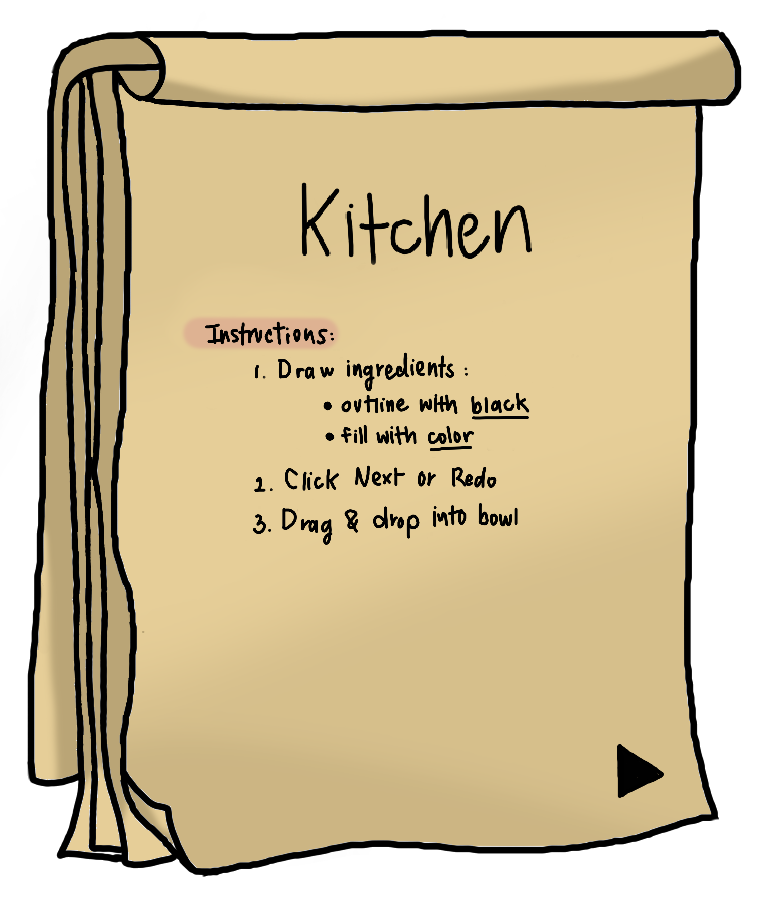 Kitchen
Instructions:
1. Draw ingredients:
• outline with black
• fill with color
2. Click Next or Redo
3. Drag & drop into bowl